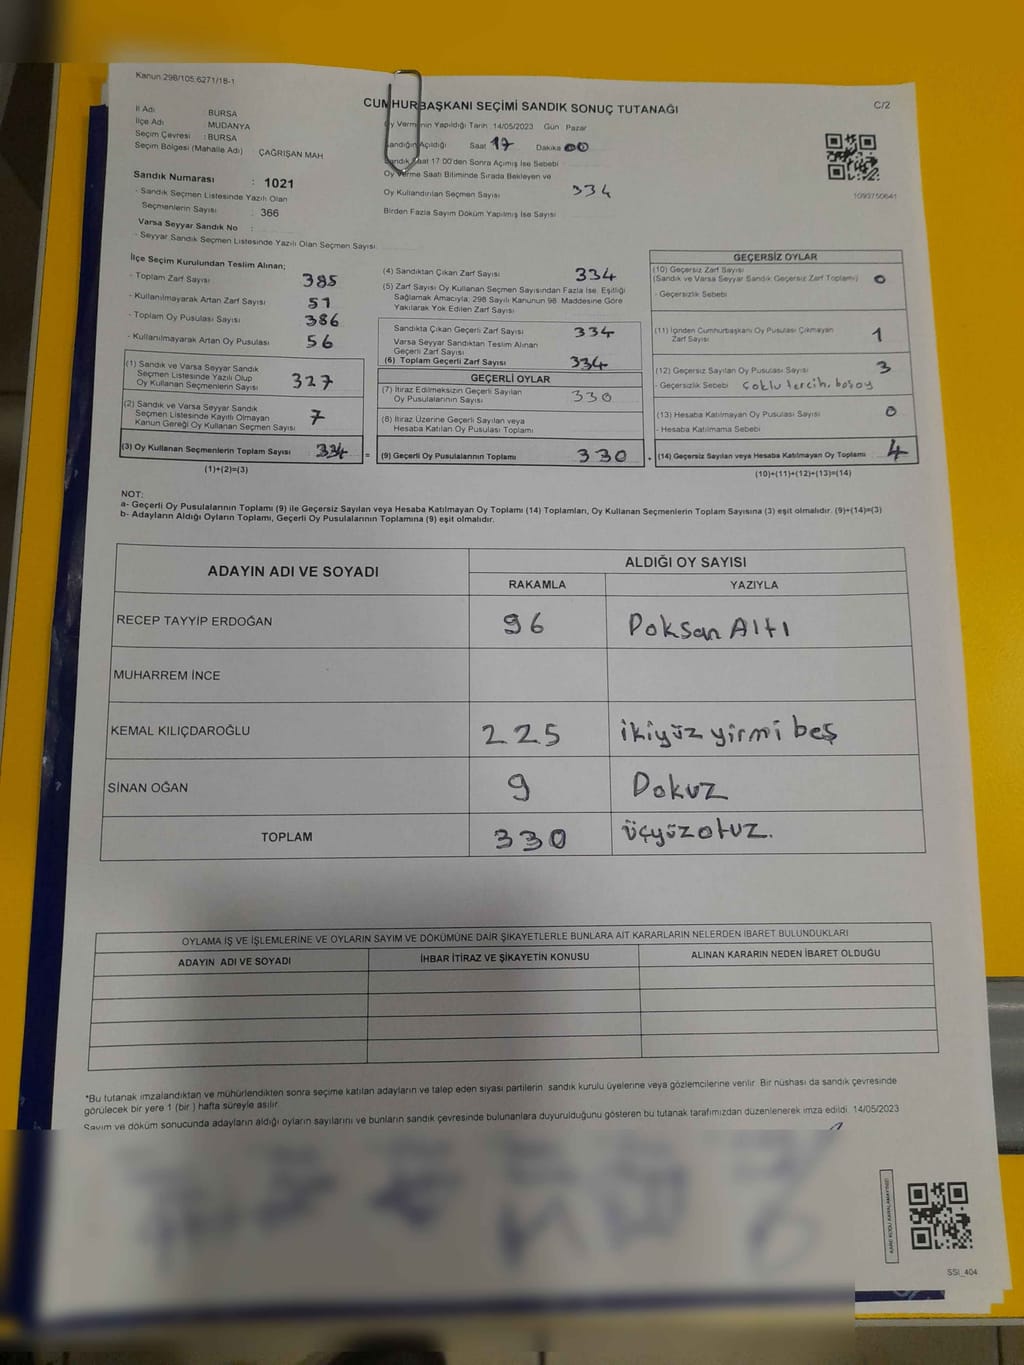 Kanun:298/105;6271/18-1
CUMHURBAŞKANI SEÇİMİ SANDIK SONUÇ TUTANAĞI
C/2
İl Adı : BURSA
İlçe Adı : MUDANYA
Seçim Çevresi : BURSA
Seçim Bölgesi (Mahalle Adı) : ÇAĞRIŞAN MAH
Sandık Numarası : 1021
- Sandık Seçmen Listesinde Yazılı Olan
Seçmenlerin Sayısı : 366
Varsa Seyyar Sandık No :
- Seyyar Sandık Seçmen Listesinde Yazılı Olan Seçmen Sayısı:
Oy Vermenin Yapıldığı Tarih: 14/05/2023 Gün: Pazar
Sandığın Açıldığı Saat 17 Dakika 00
Sandık Saat 17:00'den Sonra Açılmış İse Sebebi
Oy Verme Saati Bitiminde Sırada Bekleyen ve
Oy Kullandırılan Seçmen Sayısı 334
Birden Fazla Sayım Döküm Yapılmış İse Sayısı
1093750641
İlçe Seçim Kurulundan Teslim Alınan;
- Toplam Zarf Sayısı 385
- Kullanılmayarak Artan Zarf Sayısı 51
- Toplam Oy Pusulası Sayısı 386
- Kullanılmayarak Artan Oy Pusulası 56
(1) Sandık ve Varsa Seyyar Sandık
Seçmen Listesinde Yazılı Olup
Oy Kullanan Seçmenlerin Sayısı 327
(2) Sandık ve Varsa Seyyar Sandık
Seçmen Listesinde Kayıtlı Olmayan
Kanun Gereği Oy Kullanan Seçmen Sayısı : 7
(3) Oy Kullanan Seçmenlerin Toplam Sayısı : 334 =
(1)+(2)=(3)
(4) Sandıktan Çıkan Zarf Sayısı 334
(5) Zarf Sayısı Oy Kullanan Seçmen Sayısından Fazla İse, Eşitliği
Sağlamak Amacıyla; 298 Sayılı Kanunun 98. Maddesine Göre
Yakılarak Yok Edilen Zarf Sayısı
Sandıkta Çıkan Geçerli Zarf Sayısı 334
Varsa Seyyar Sandıktan Teslim Alınan
Geçerli Zarf Sayısı
(6) Toplam Geçerli Zarf Sayısı 334
GEÇERLİ OYLAR
(7) İtiraz Edilmeksizin Geçerli Sayılan
Oy Pusulalarının Sayısı 330
(8) İtiraz Üzerine Geçerli Sayılan veya
Hesaba Katılan Oy Pusulası Toplamı
(9) Geçerli Oy Pusulalarının Toplamı 330 +
GEÇERSİZ OYLAR
(10) Geçersiz Zarf Sayısı
(Sandık ve Varsa Seyyar Sandık Geçersiz Zarf Toplamı) 0
- Geçersizlik Sebebi
(11) İçinden Cumhurbaşkanı Oy Pusulası Çıkmayan
Zarf Sayısı 1
(12) Geçersiz Sayılan Oy Pusulası Sayısı 3
- Geçersizlik Sebebi çoklu tercih, boş oy
(13) Hesaba Katılmayan Oy Pusulası Sayısı 0
- Hesaba Katılmama Sebebi
(14) Geçersiz Sayılan veya Hesaba Katılmayan Oy Toplamı 4
(10)+(11)+(12)+(13)=(14)
NOT:
a- Geçerli Oy Pusulalarının Toplamı (9) ile Geçersiz Sayılan veya Hesaba Katılmayan Oy Toplamı (14) Toplamları, Oy Kullanan Seçmenlerin Toplam Sayısına (3) eşit olmalıdır. (9)+(14)=(3)
b- Adayların Aldığı Oyların Toplamı, Geçerli Oy Pusulalarının Toplamına (9) eşit olmalıdır.
ADAYIN ADI VE SOYADI
ALDIĞI OY SAYISI
RAKAMLA YAZIYLA
RECEP TAYYİP ERDOĞAN 96 Doksan Altı
MUHARREM İNCE
KEMAL KILIÇDAROĞLU 225 ikiyüz yirmi beş
SİNAN OĞAN 9 Dokuz
TOPLAM 330 üçyüzotuz.
OYLAMA İŞ VE İŞLEMLERİNE VE OYLARIN SAYIM VE DÖKÜMÜNE DAİR ŞİKAYETLERLE BUNLARA AİT KARARLARIN NELERDEN İBARET BULUNDUKLARI
ADAYIN ADI VE SOYADI İHBAR İTİRAZ VE ŞİKAYETİN KONUSU ALINAN KARARIN NEDEN İBARET OLDUĞU
*Bu tutanak imzalandıktan ve mühürlendikten sonra seçime katılan adayların ve talep eden siyasi partilerin sandık kurulu üyelerine veya gözlemcilerine verilir. Bir nüshası da sandık çevresinde
görülecek bir yere 1 (bir ) hafta süreyle asılır.
Sayım ve döküm sonucunda adayların aldığı oyların sayılarını ve bunların sandık çevresinde bulunanlara duyurulduğunu gösteren bu tutanak tarafımızdan düzenlenerek imza edildi. 14/05/2023
KARE KODU KARALAMAYINIZ!
SSI_404